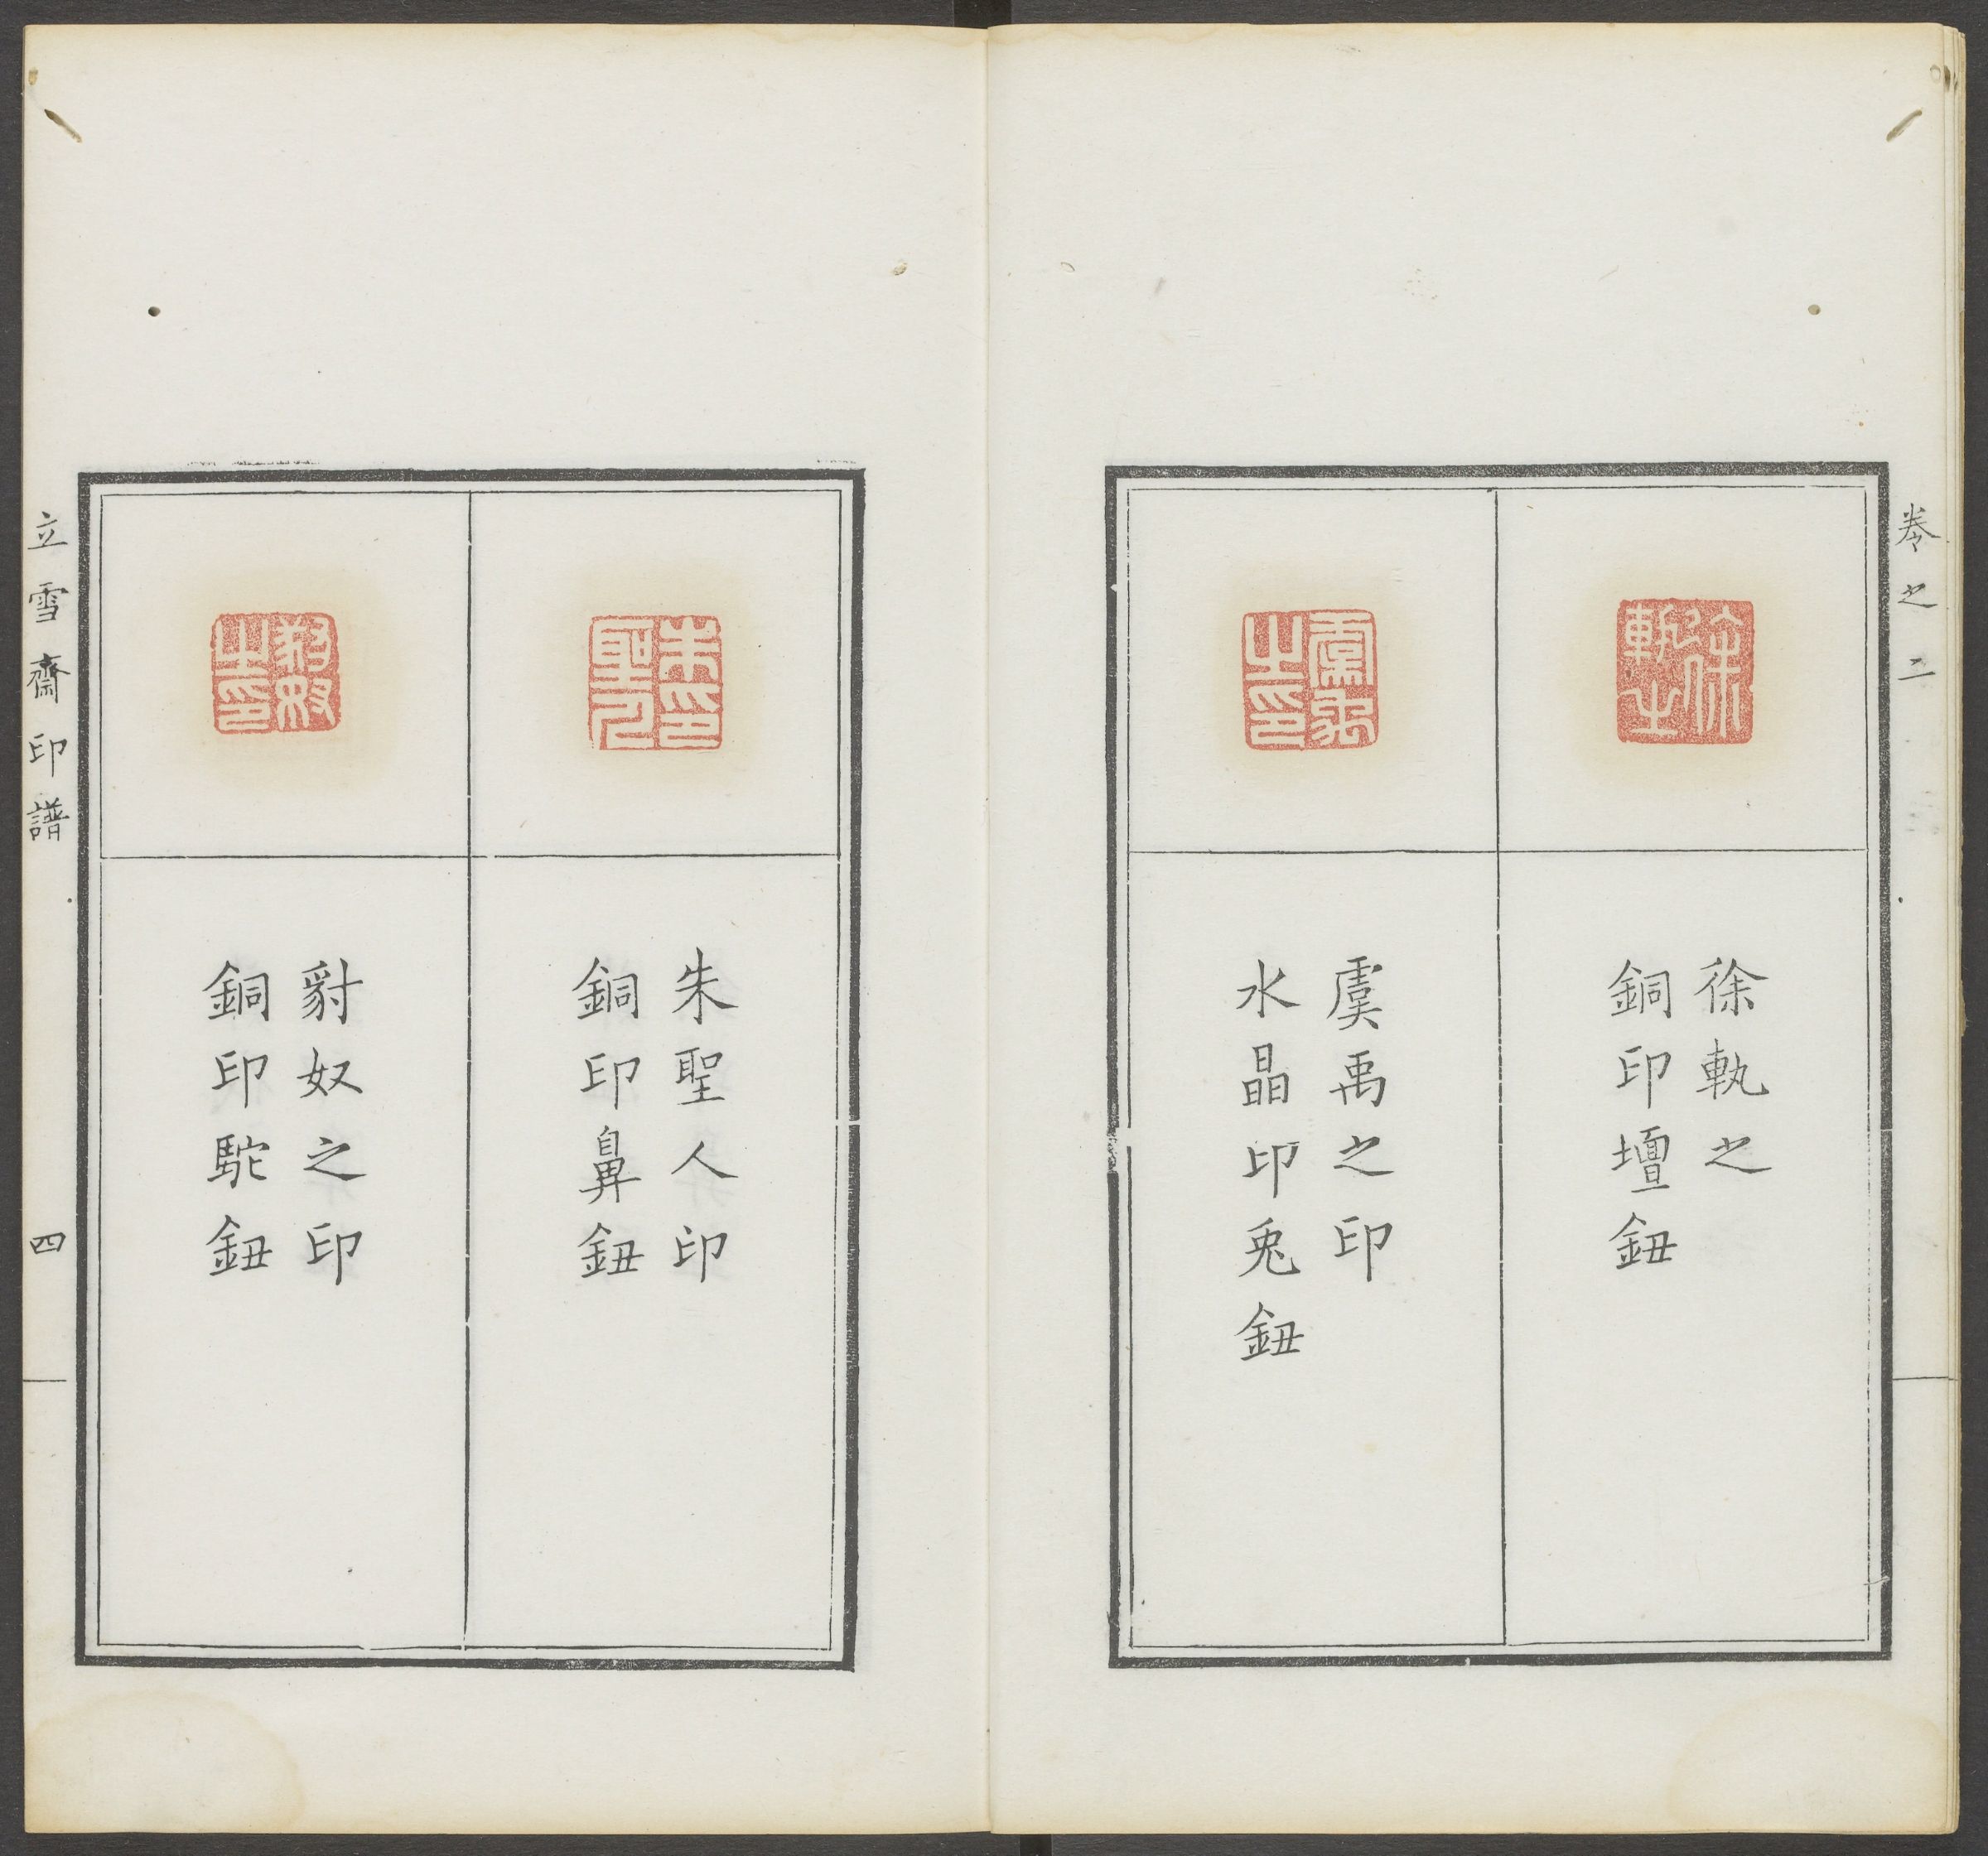 卷之二
徐執之
銅印壇鈕
虞禹之印
水晶印兎鈕
朱聖人印
銅印鼻鈕
豺奴之印
銅印駝鈕
立雪齋印譜
四